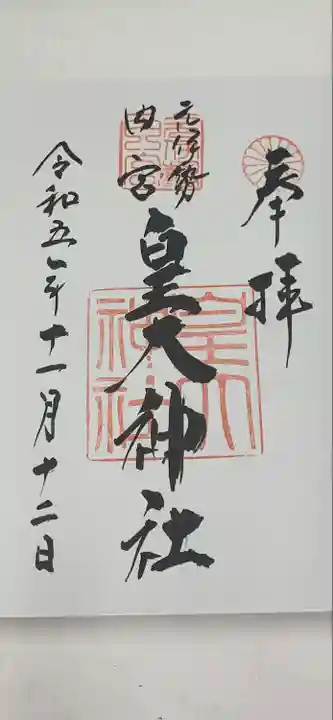 奉拝
元伊勢
内宮
皇大神社
皇大
神社
令和五年十一月十二日